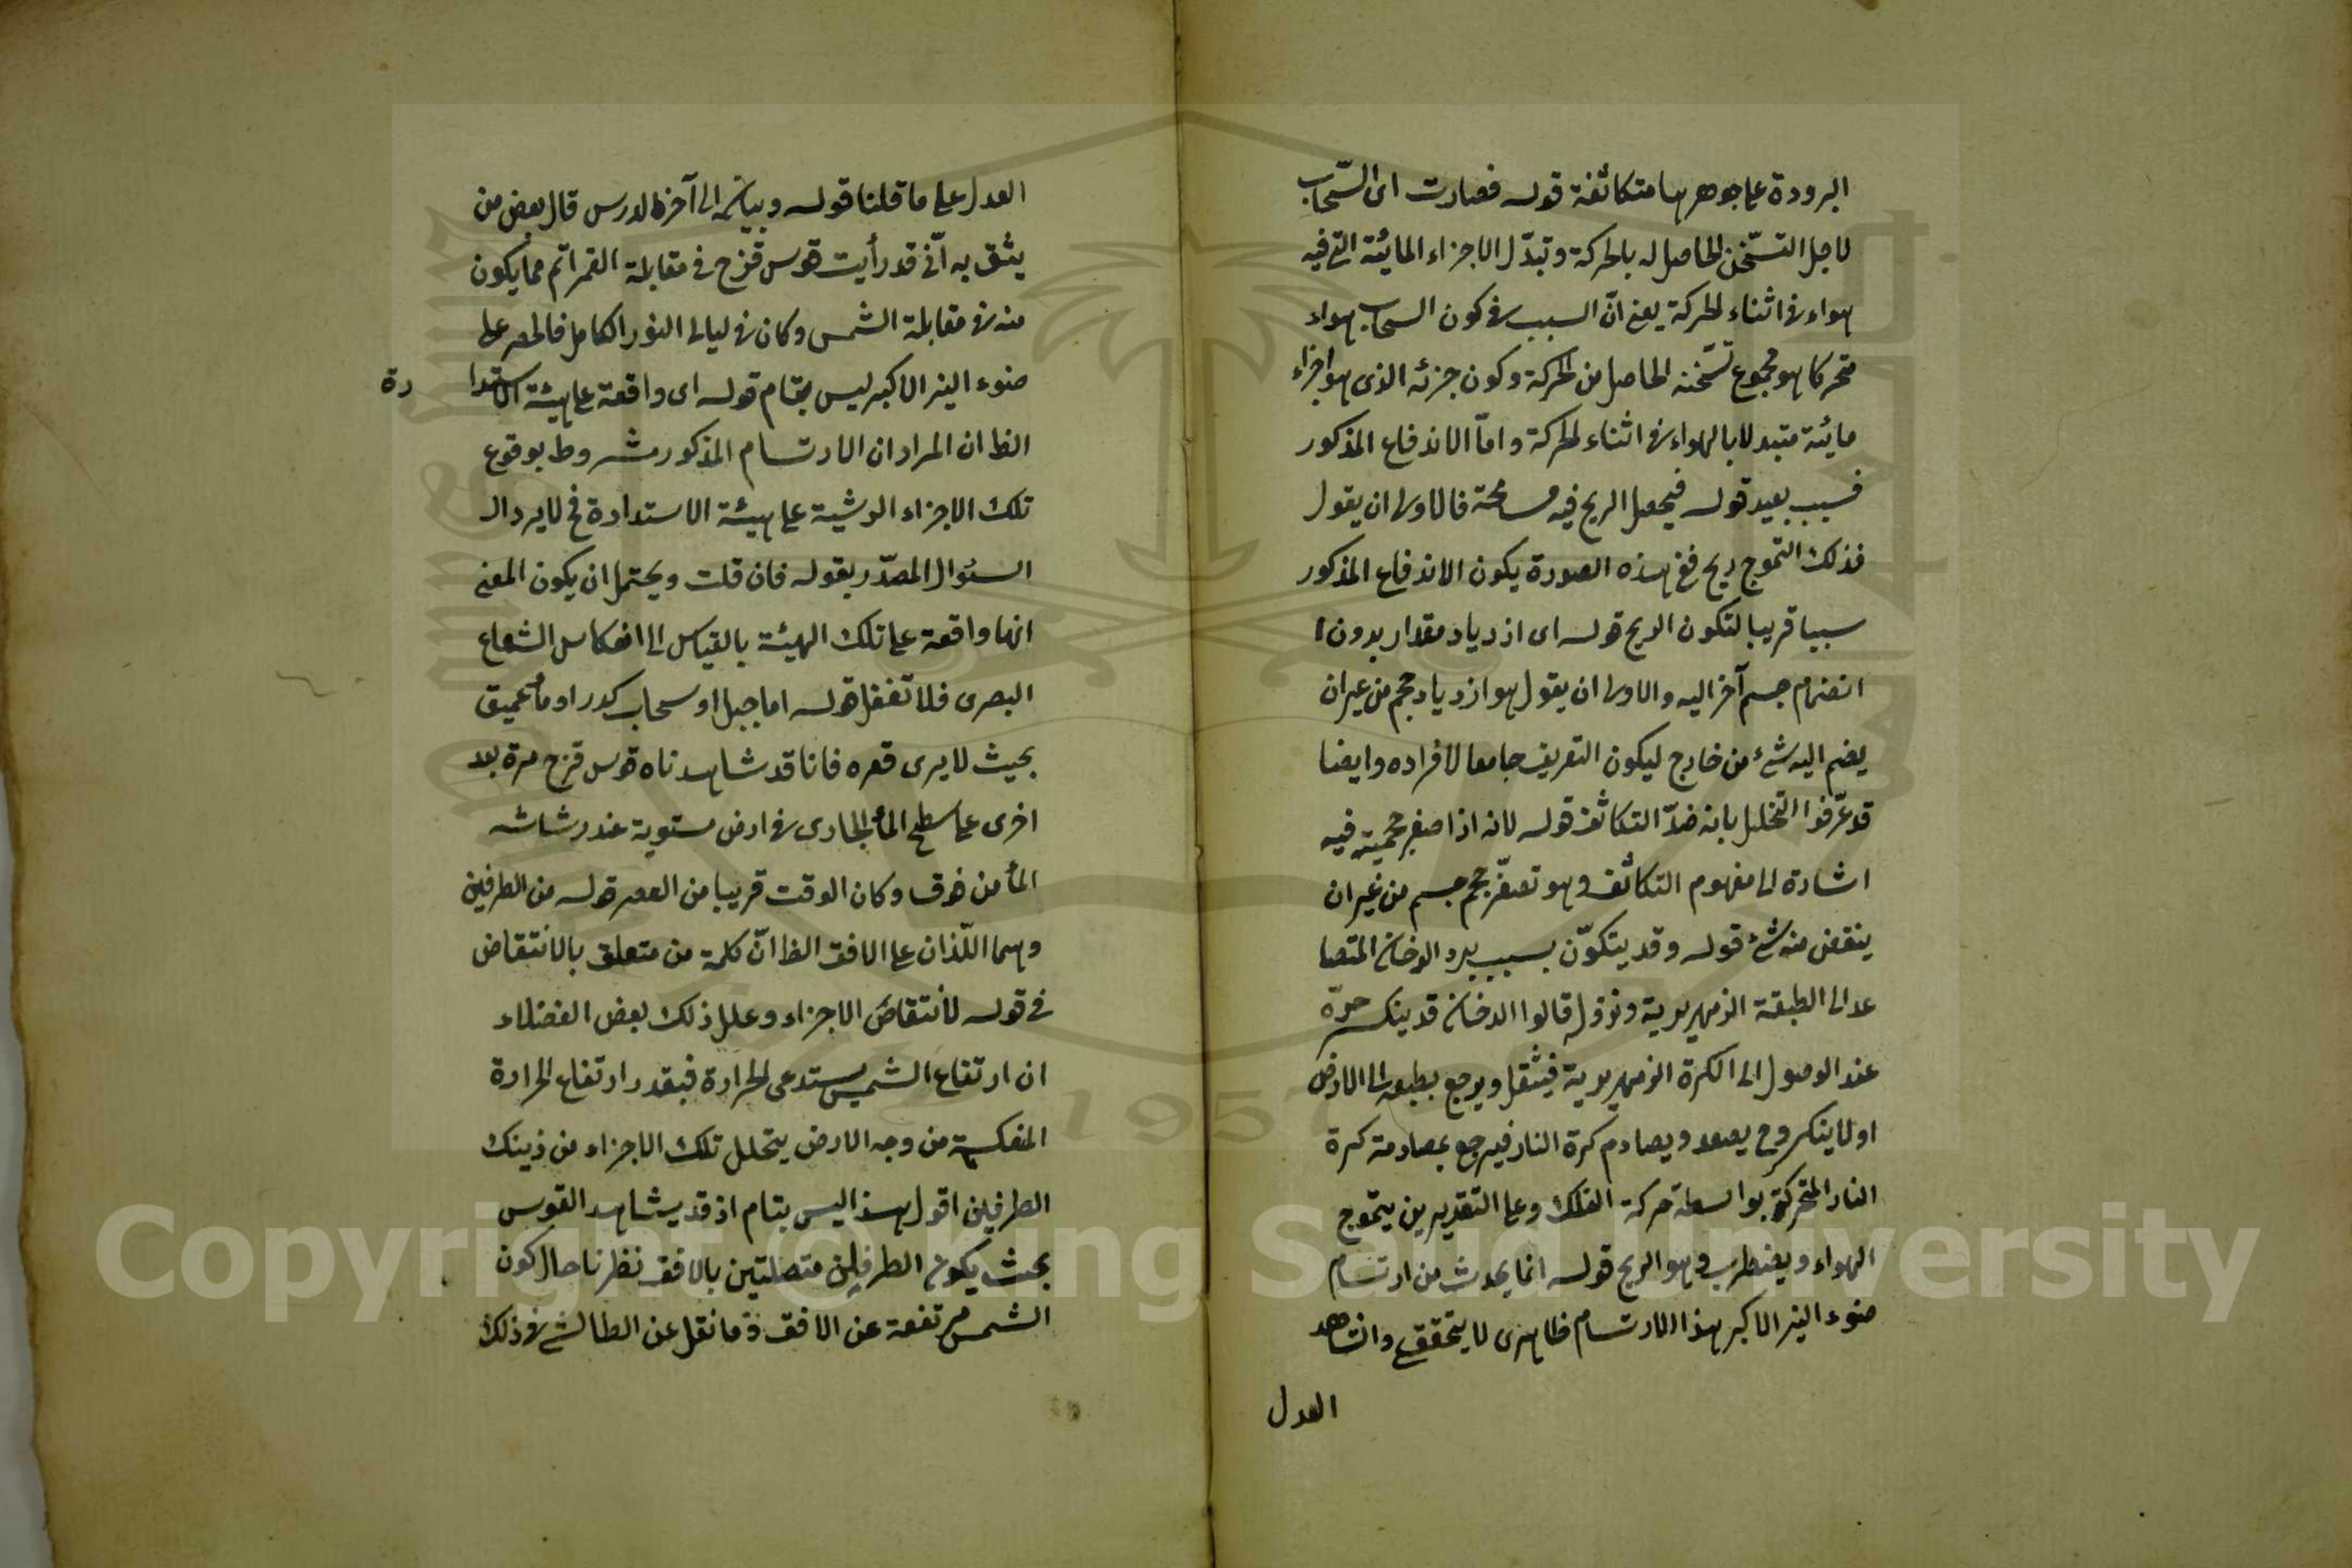 البرودة على جوهرها متكاثفة قوله فصارت اى السّحاب
لاجل التسّخن الحاصل له بالحركة وتبدّل الاجزاء المائية التى فيه
هواء فى اثناء الحركة يعنى انّ السبب فى كون السحاب هواء
متحركا هو مجموع تسّخنه الحاصل من الحركة وكون جزئه الذى هو اجزاء
مائية متبدلا بالهواء فى اثناء الحركة وامّا الاندفاع المذكور
فسبب بعيد قوله فيحصل الريح فيه مسامحة فالاولى ان يقول
فذلك التموج ريح ففى هذه الصورة يكون الاندفاع المذكور
سببا قريبا لتكون الريح قوله اى ازدياد مقدار بدون
انضمام جسم آخر اليه والاولى ان يقول هو ازدياد حجم من غيران
يضم اليه شئ من خارج ليكون التعريف جامعا لافراده وايضا
قد عرّفوا التخلخل بانه ضدّ التكاثف قوله لانه اذا صغر حجمه فيه
اشارة الى مفهوم التكاثف وهو تصغّر حجم جسم من غيران
ينقض منه شئ قوله وقد يتكوّن بسبب برد الدخان المتصا
عد الى الطبقة الزمهريرية ونزوله قالوا الدخان قد ينكسر حرّه
عند الوصول الى الكرة الزمهريرية فيثقل ويرجع بطبعه الى الارض
اولا ينكسر وح يصعد ويصادم كرة النار فيرجع بمصادمة كرة
النار المتحركة بواسطة حركة الفلك وعلى التقديرين يتموج
الهواء ويضطرب وهو الريح قوله انما يحدث من ارتسام
ضوء النير الاكبر هذا الارتسام ظاهرى لا يتحقق وانشاهد
العدل
العدل على ما قلنا قوله وبيانه الى آخره الدرس قال بعض من
يثق به انّى قد رأيت قوس قزح فى مقابلة القمر اتم مما يكون
منه فى مقابلة الشمس وكان فى ليالى النور الكامل فالحصر على
ضوء النير الاكبر ليس بتمام قوله اى واقعة على هيئة الاستدا رة
الظ ان المراد ان الارتسام المذكور مشروط بوقوع
تلك الاجزاء الرشية على هيئة الاستدارة فح لا يرد الـ
السئوال المصدّر بقوله فان قلت ويحتمل ان يكون المعنى
انها واقعة على تلك الهيئة بالقياس الى انعكاس الشعاع
البصرى فلا تغفل قوله اما جبل او سحاب كدر او مأ عميق
بحيث لا يرى قعره فانا قد شاهدناه قوس قزح مرة بعد
اخرى على سطح المأ الجارى فى ارض مستوية عند رشاشه
المأ من فوق وكان الوقت قريبا من العصر قوله من الطرفين
وهما اللّذان على الافق الظ انّ كلمة من متعلق بالانتقاض
فى قوله لانتقاض الاجزاء وعلل ذلك بعض الفضلاء
ان ارتفاع الشمس يستدعى الحرارة فبقدر ارتفاع الحرارة
المنعكسة من وجه الارض يتحلل تلك الاجزاء من ذينك
الطرفين اقول هذا ليس بتام اذ قد يشاهد القوس
بحيث يكون الطرفين متصلتين بالافق نظرنا حال كون
الشمس مرتفعة عن الافق وما نقل عن الطالشى فى ذلك
Copyright © King Saud University
1957